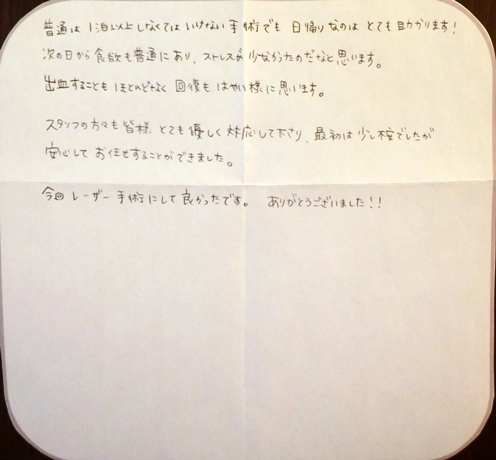 普通は 1泊以上しなくてはいけない手術でも 日帰りなのは とても助かります!
次の日から食欲も普通にあり、ストレスが少なかったのだなと思います。
出血することも ほとんどなく 回復も はやい様に思います。
スタッフの方々も皆様 とても優しく 対応して下さり、最初は少し不安でしたが
安心して お任せすることができました。
今回 レーザー手術にして良かったです。 ありがとうございました!!